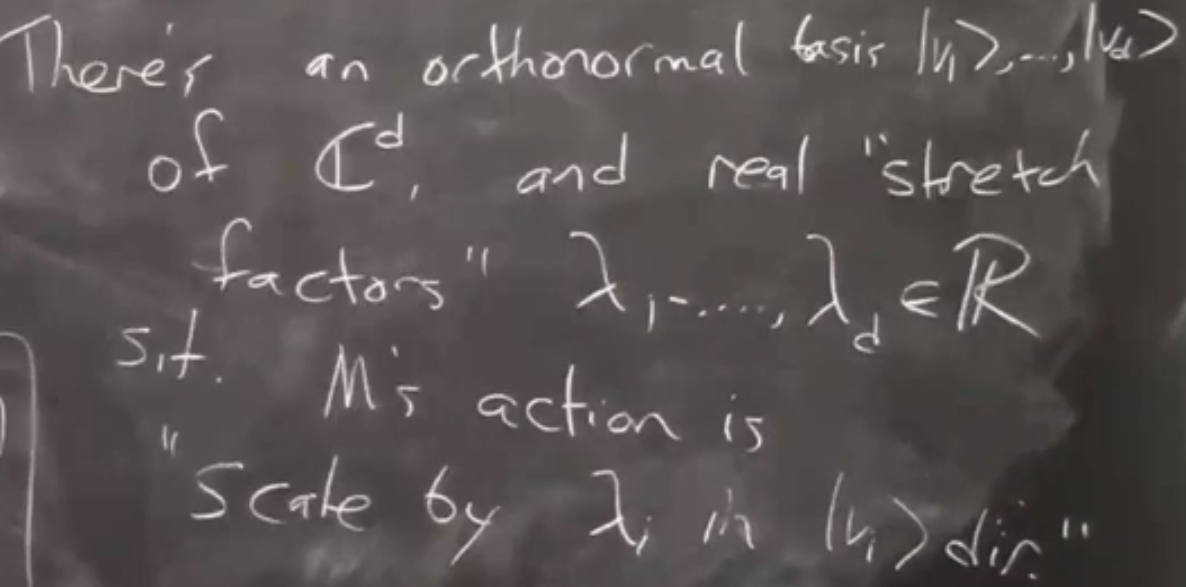 There's an orthonormal basis |v₁⟩,...,|v_d⟩
of ℂᵈ, and real "stretch
factors" λ₁,.....,λ_d ∈ ℝ
s.t. M's action is
"Scale by λᵢ in |vᵢ⟩ dir."